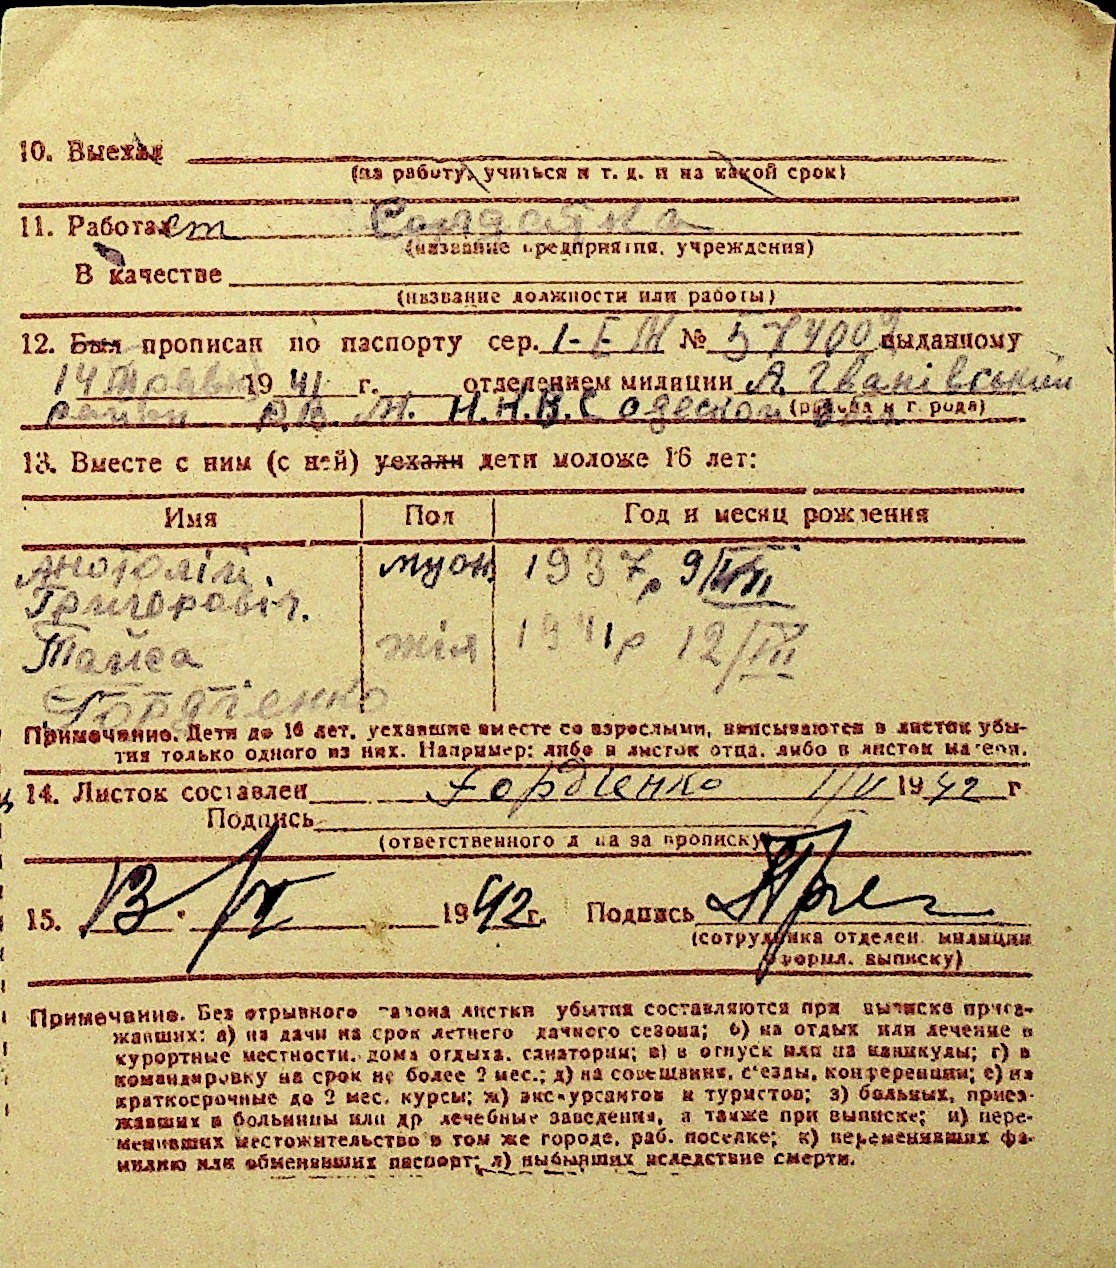 10. Выехал
(на работу, учиться и т. д. и на какой срок)
11. Работает Солдатка
(название предприятия, учреждения)
В качестве
(название должности или работы)
12. Был прописан по паспорту сер. I-ЕЖ № 574002 выданному
14 травня 1941 г. отделением милиции А. Іванівський
район Р.В. М. Н.К.В.С Одеской обл
(района и города)
13. Вместе с ним (с ней) уехали дети моложе 16 лет:
Имя Пол Год и месяц рождения
Анотолій муж 1937 р 9/VIII
Григоровіч.
Таиса жін 1941 р 12/VII
Гордіенко
Примечание. Дети до 16 лет, уехавшие вместе со взрослыми, вписываются в листок убы-
тия только одного из них. Например: либо в листок отца, либо в листок матери.
14. Листок составлен Гордіенко 1/IV 1942 г
Подпись
(ответственного лица за прописку)
15. 13. IV 1942 г. Подпись
(сотрудника отделен. милиции
оформл. выписку)
Примечание. Без отрывного талона листки убытия составляются при выписке приез-
жавших: а) на дачи на срок летнего дачного сезона; б) на отдых или лечение в
курортные местности, дома отдыха, санатории; в) в отпуск или на каникулы; г) в
командировку на срок не более 2 мес.; д) на совещания, с'езды, конференции; е) на
краткосрочные до 2 мес. курсы; ж) экскурсантов и туристов; з) больных, приез-
жавших в больницы или др лечебные заведения, а также при выписке; и) пере-
менивших местожительство в том же городе, раб. поселке; к) переменивших фа-
милию или обменявших паспорт; л) выбывших вследствие смерти.